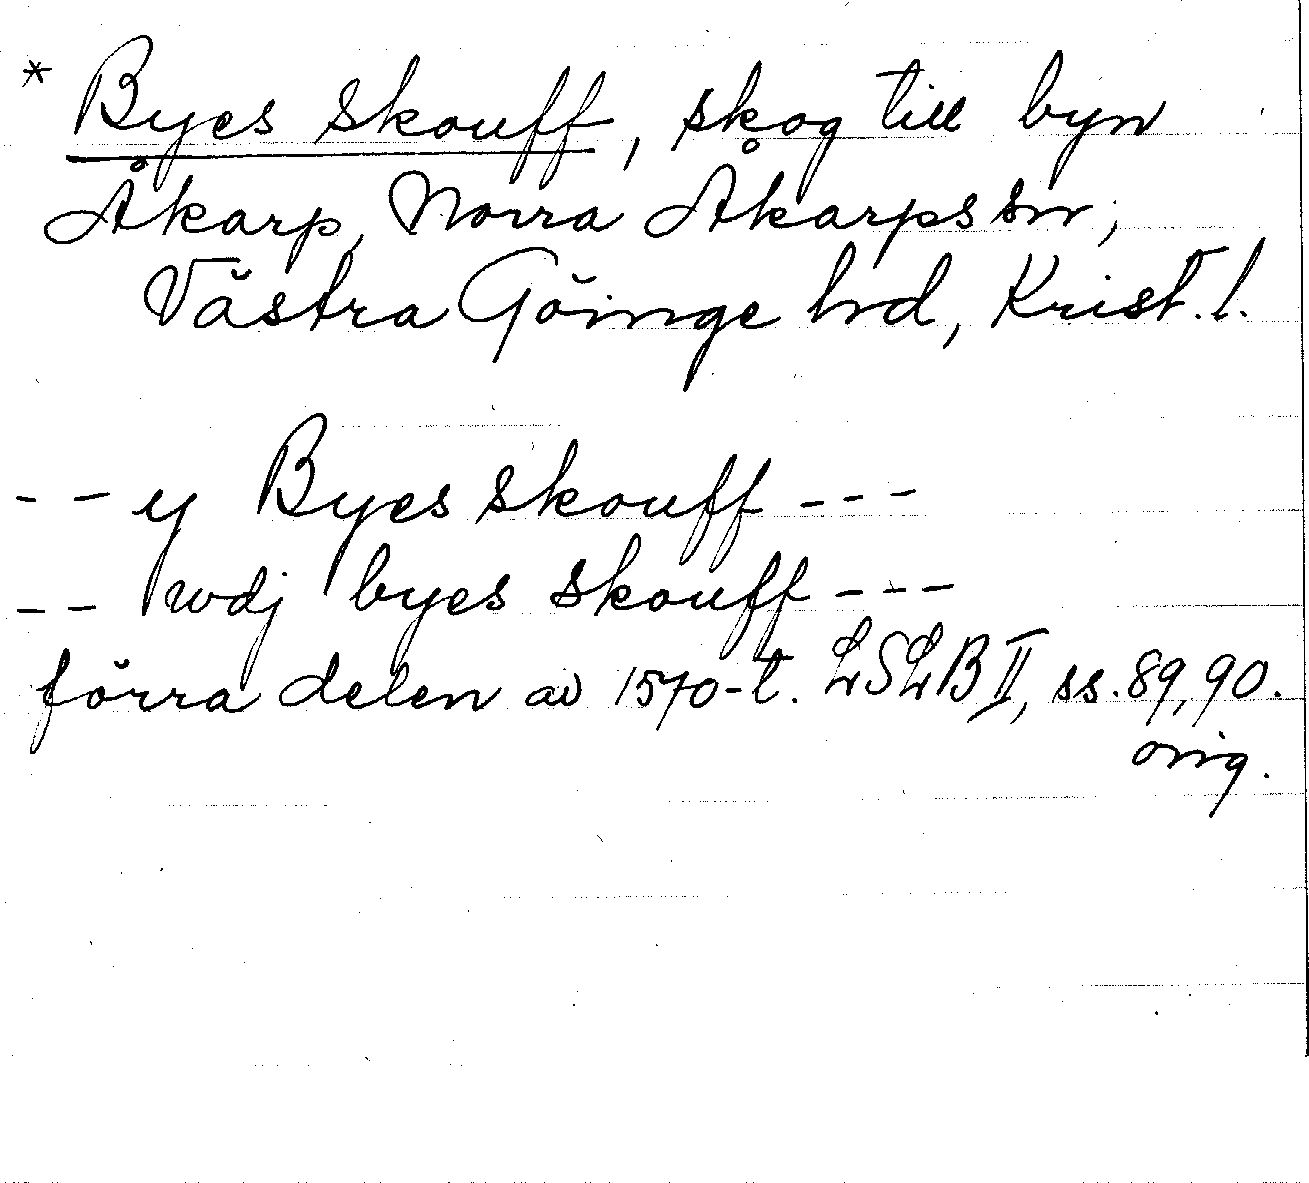 * Byes skouff, skog till byn
Åkarp, Norra Åkarps sn,
Västra Göinge hrd, Krist. l.
- - y Byes skouff - - -
- - wdj byes skouff - - -
förra delen av 1570-t. LSLB II, ss. 89, 90.
orig.